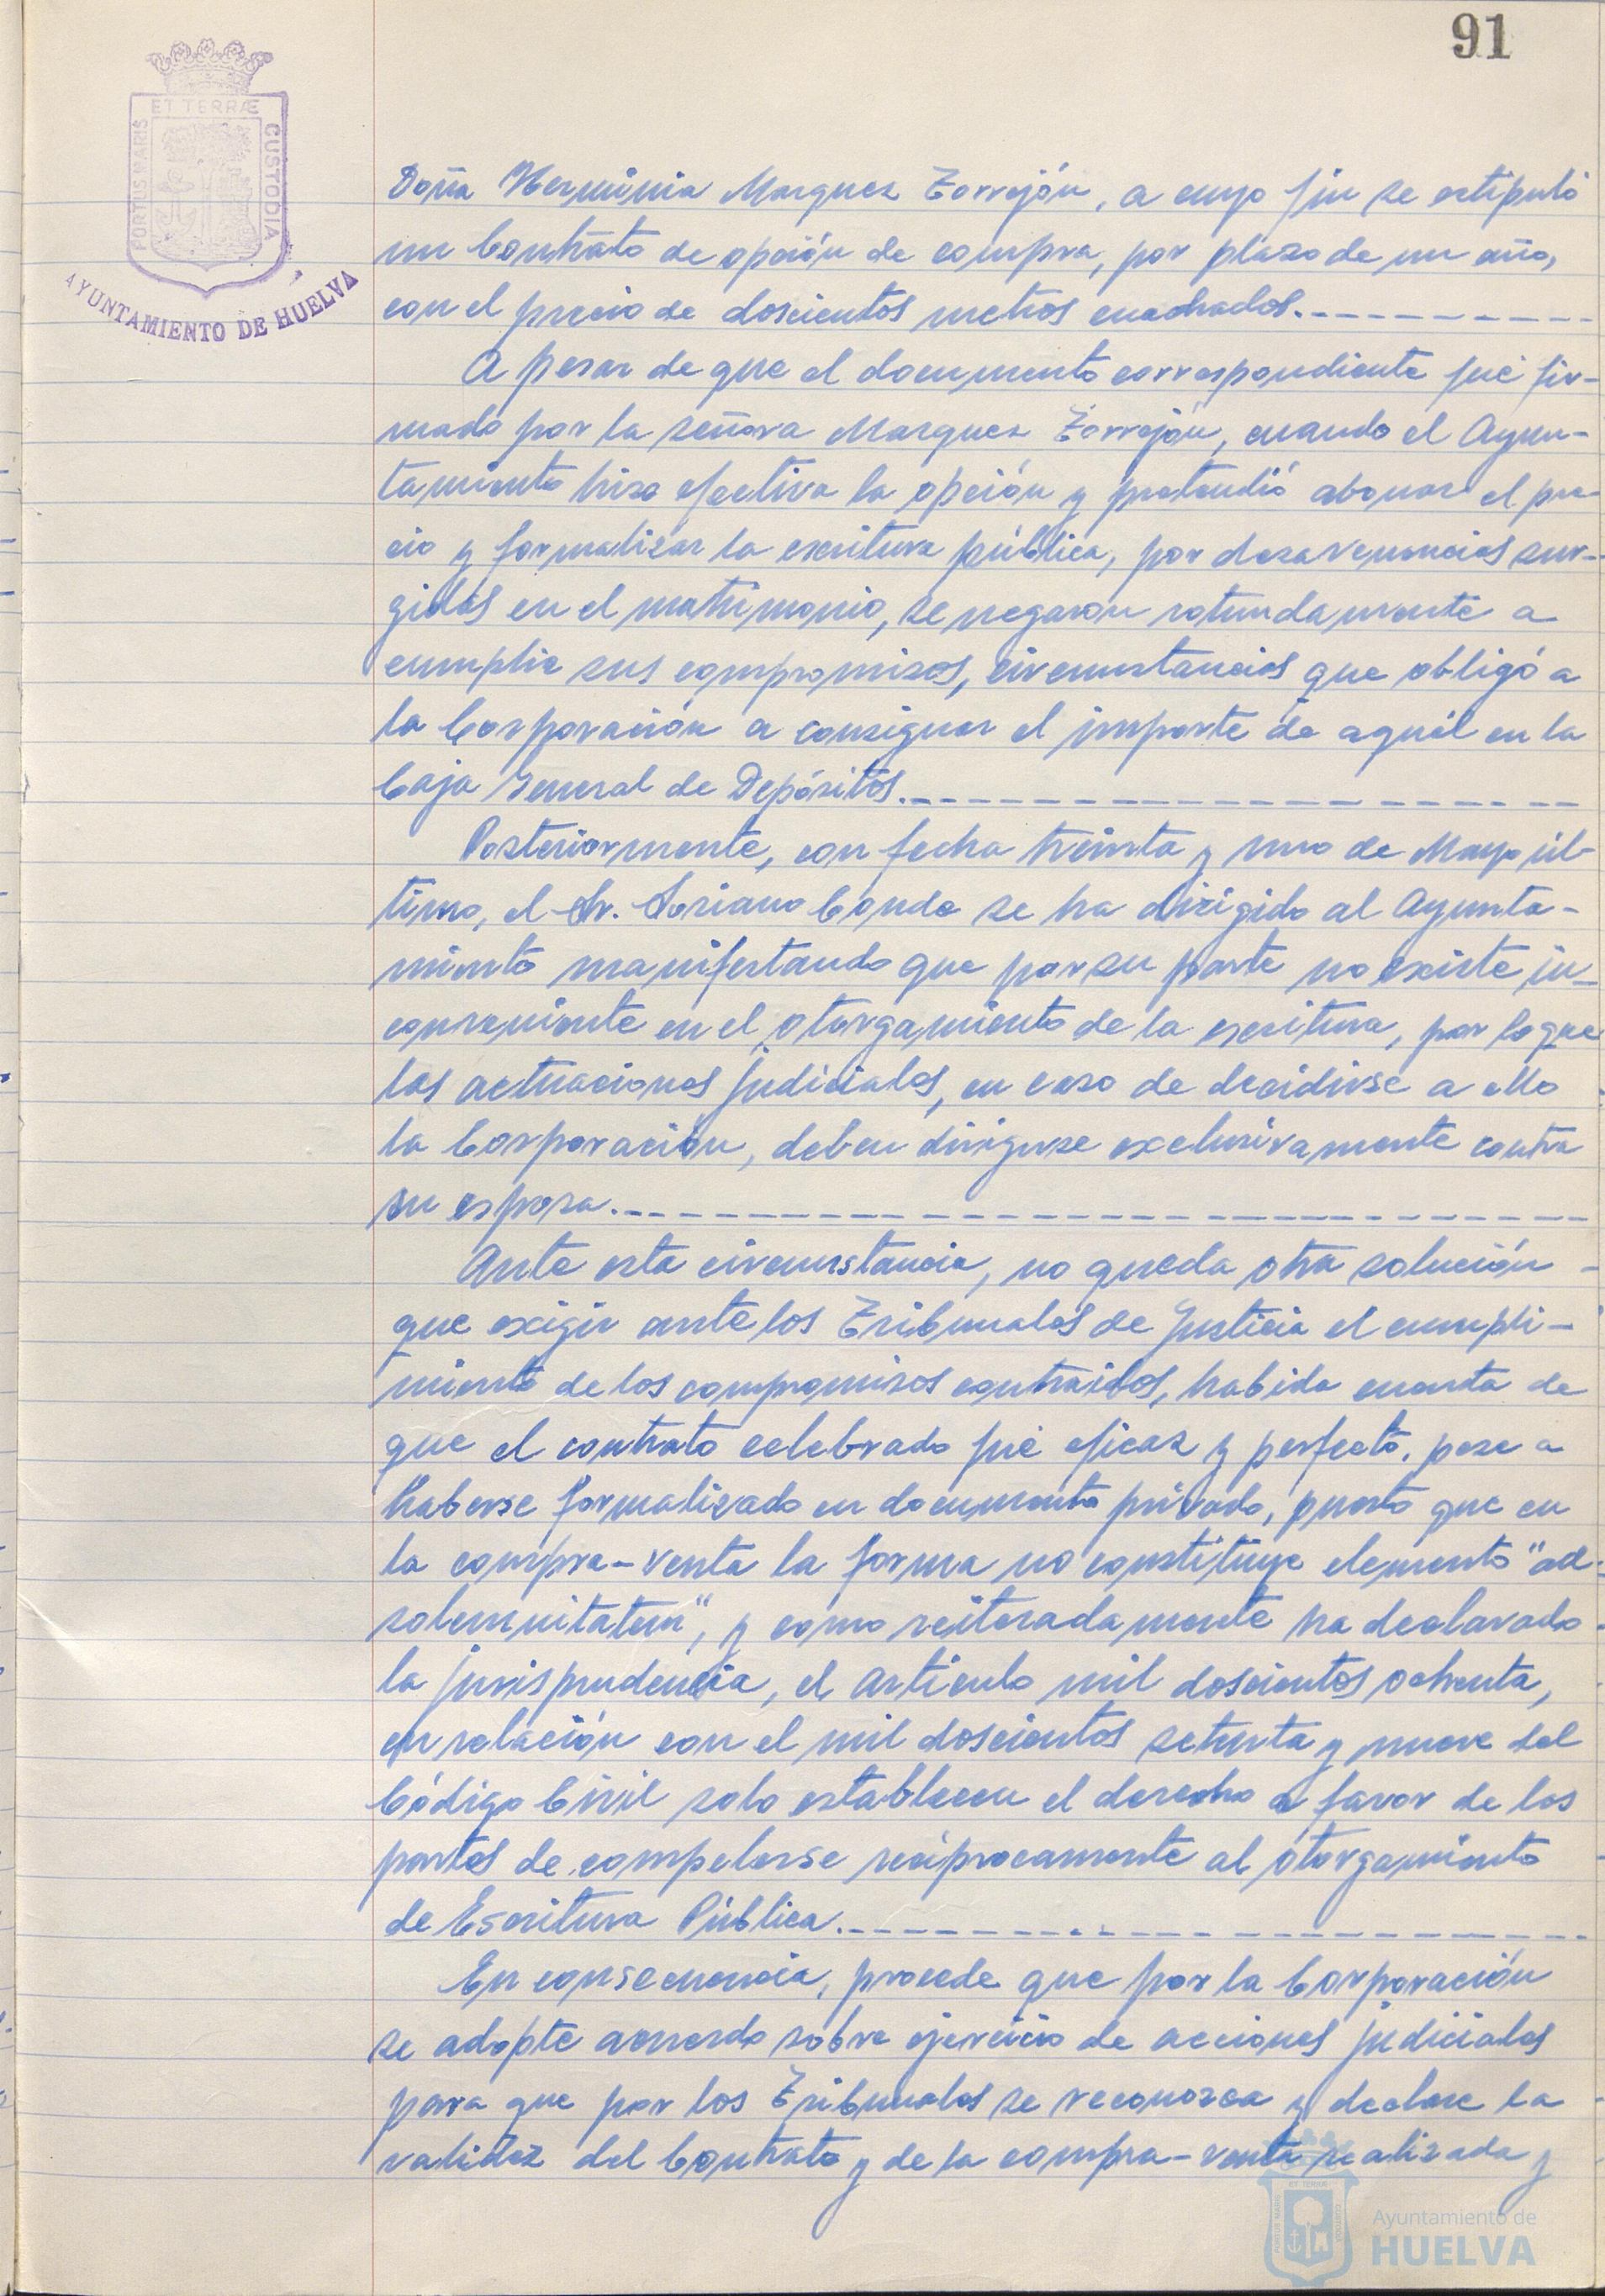 91
ET TERRÆ
PORTUS MARIS
CUSTODIA
AYUNTAMIENTO DE HUELVA
Doña Herminia Marquez Torrejón, a cuyo fin se estipuló
un Contrato de opción de compra, por plazo de un año,
con el precio de doscientos metros cuadrados.
A pesar de que el documento correspondiente fué fir-
mado por la señora Marquez Torrejón, cuando el Ayun-
tamiento hizo efectiva la opción y pretendió abonar el pre-
cio y formalizar la escritura pública, por desavenencias sur-
gidas en el matrimonio, se negaron rotundamente a
cumplir sus compromisos, circunstancias que obligó a
la Corporación a consignar el importe de aquél en la
Caja General de Depósitos.
Posteriormente, con fecha treinta y uno de Mayo úl-
timo, el Sr. Soriano Conde se ha dirigido al Ayunta-
miento manifestando que por su parte no existe in-
conveniente en el otorgamiento de la escritura, por lo que
las actuaciones judiciales, en caso de decidirse a ello
la Corporación, deben dirigirse exclusivamente contra
su esposa.
Ante esta circunstancia, no queda otra solución
que exigir ante los Tribunales de Justicia el cumpli-
miento de los compromisos contraídos, habida cuenta de
que el contrato celebrado fué eficaz y perfecto, pese a
haberse formalizado en documento privado, puesto que en
la compra-venta la forma no constituye elemento "ad-
solemnitatem", y como reiteradamente ha declarado
la jurisprudencia, el artículo mil doscientos ochenta,
en relación con el mil doscientos setenta y nueve del
Código Civil solo establecen el derecho a favor de las
partes de compelerse recíprocamente al otorgamiento
de Escritura Pública.
En consecuencia, procede que por la Corporación
se adopte acuerdo sobre ejercicio de acciones judiciales
para que por los Tribunales se reconozca y declare la
validez del Contrato y de la compra-venta realizada y
Ayuntamiento de
HUELVA